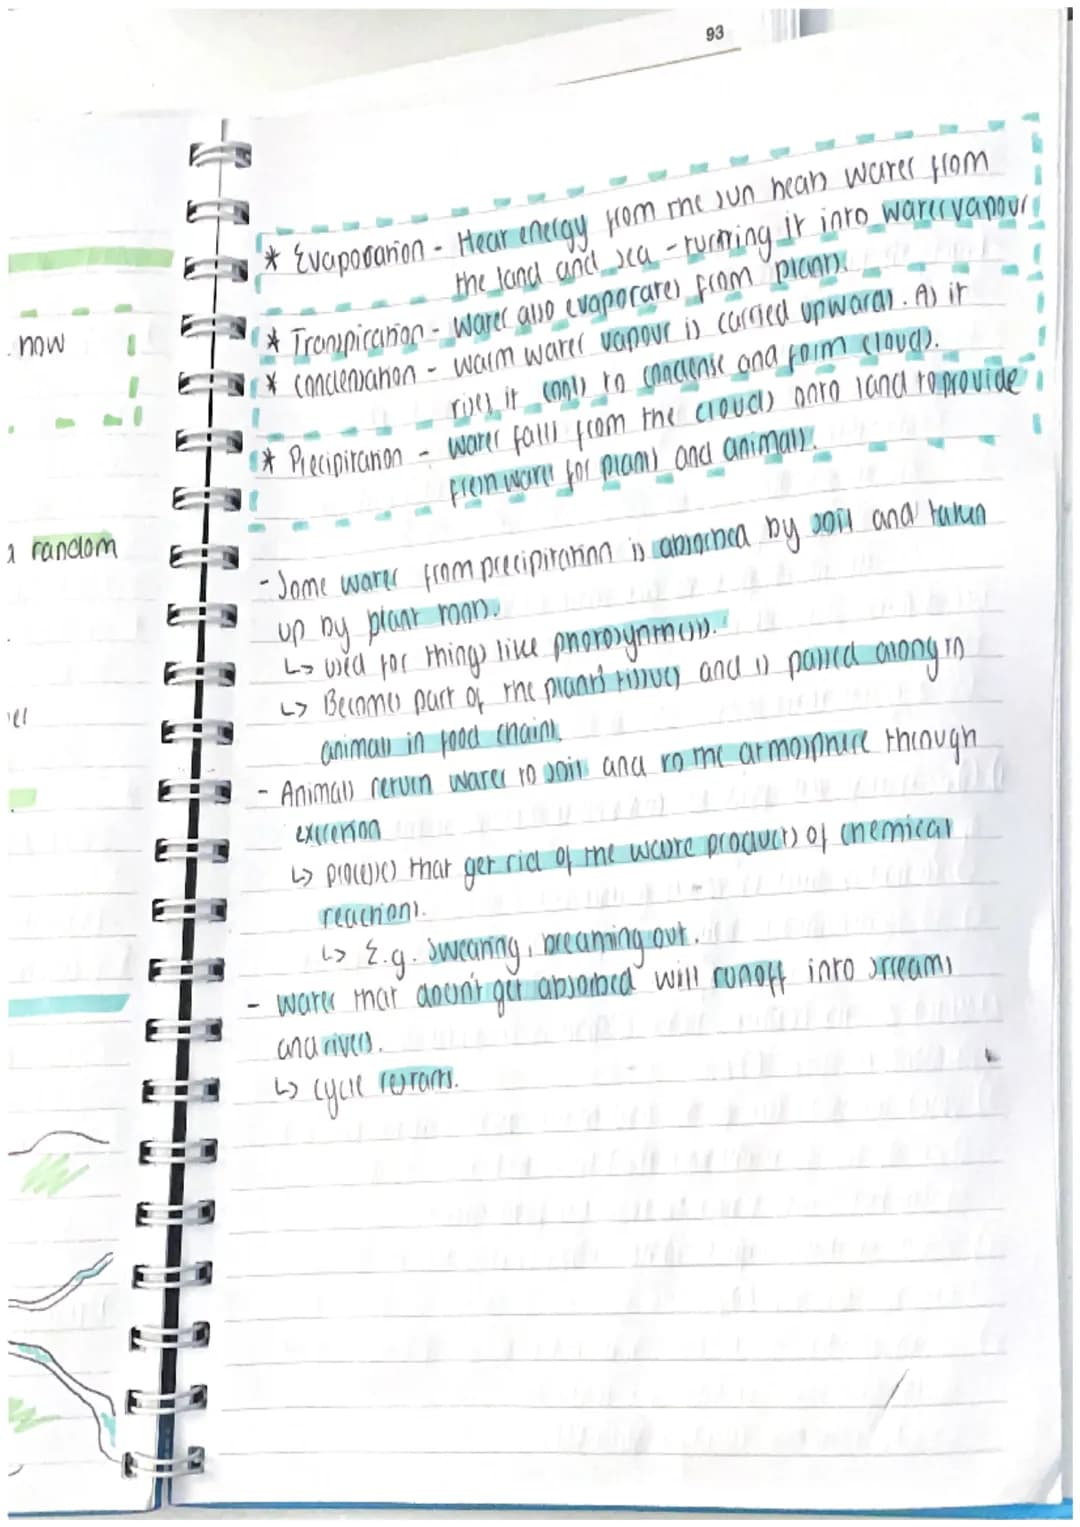 93
* Evaporation - Heat energy from the sun heats water from
the land and sea - turning it into water vapour
* Transpiration - Water also evaporates from plants.
* Condensation - warm water vapour is carried upwards. As it
rises it cools to condense and form clouds.
* Precipitation - Water falls from the clouds onto land to provide
fresh water for plants and animals.
- Some water from precipitation is absorbed by soil and taken
up by plant roots.
↳ used for things like photosynthesis.
↳ Becomes part of the plants tissues and is passed along in
animals in food chains.
- Animals return water to soil and to the atmosphere through
excretion
↳ processes that get rid of the waste products of chemical
reactions.
↳ E.g. Sweating, breathing out.
- Water that doesn't get absorbed will runoff into streams
and rivers.
↳ cycle restarts.
now
random